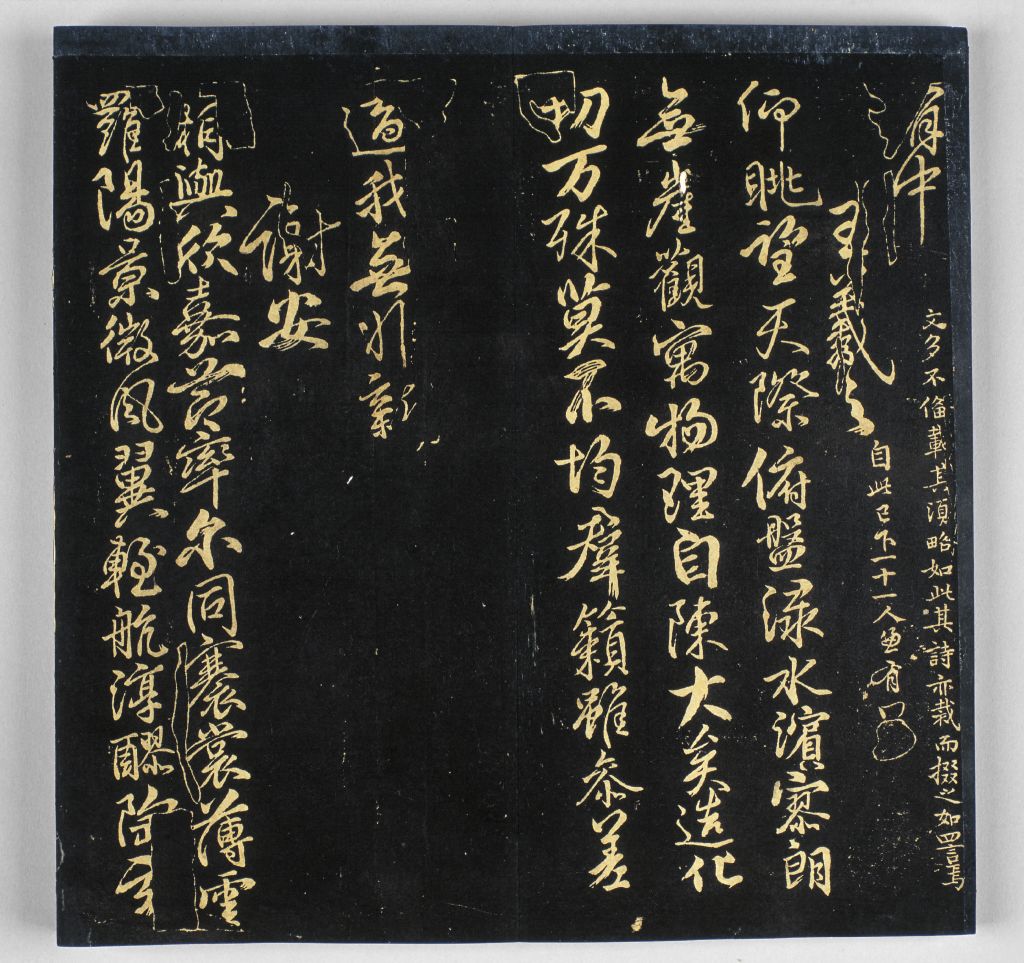 中 文多不備載其須略如此其詩亦裁而掇之如四言焉
王羲之 自此已下一十一人並有
仰眺望天際俯盤渌水濱寥朗
無崖觀寓物理自陳大矣造化
功万殊莫不均群籟雖参差
適我無非新
謝安
相與欣嘉節率尔同褰裳薄雲
羅陽景微風翼輕航淳醪陶玄